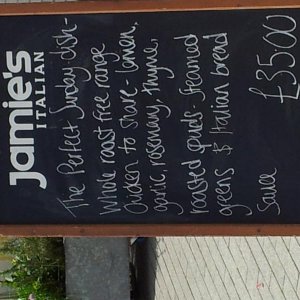 Jamie's
ITALIAN
The Perfect Sunday dish-
Whole roast free range
chicken to share - lemon,
garlic, rosemary, thyme,
roasted spuds steamed
greens & Italian bread
Sauce
£35.00